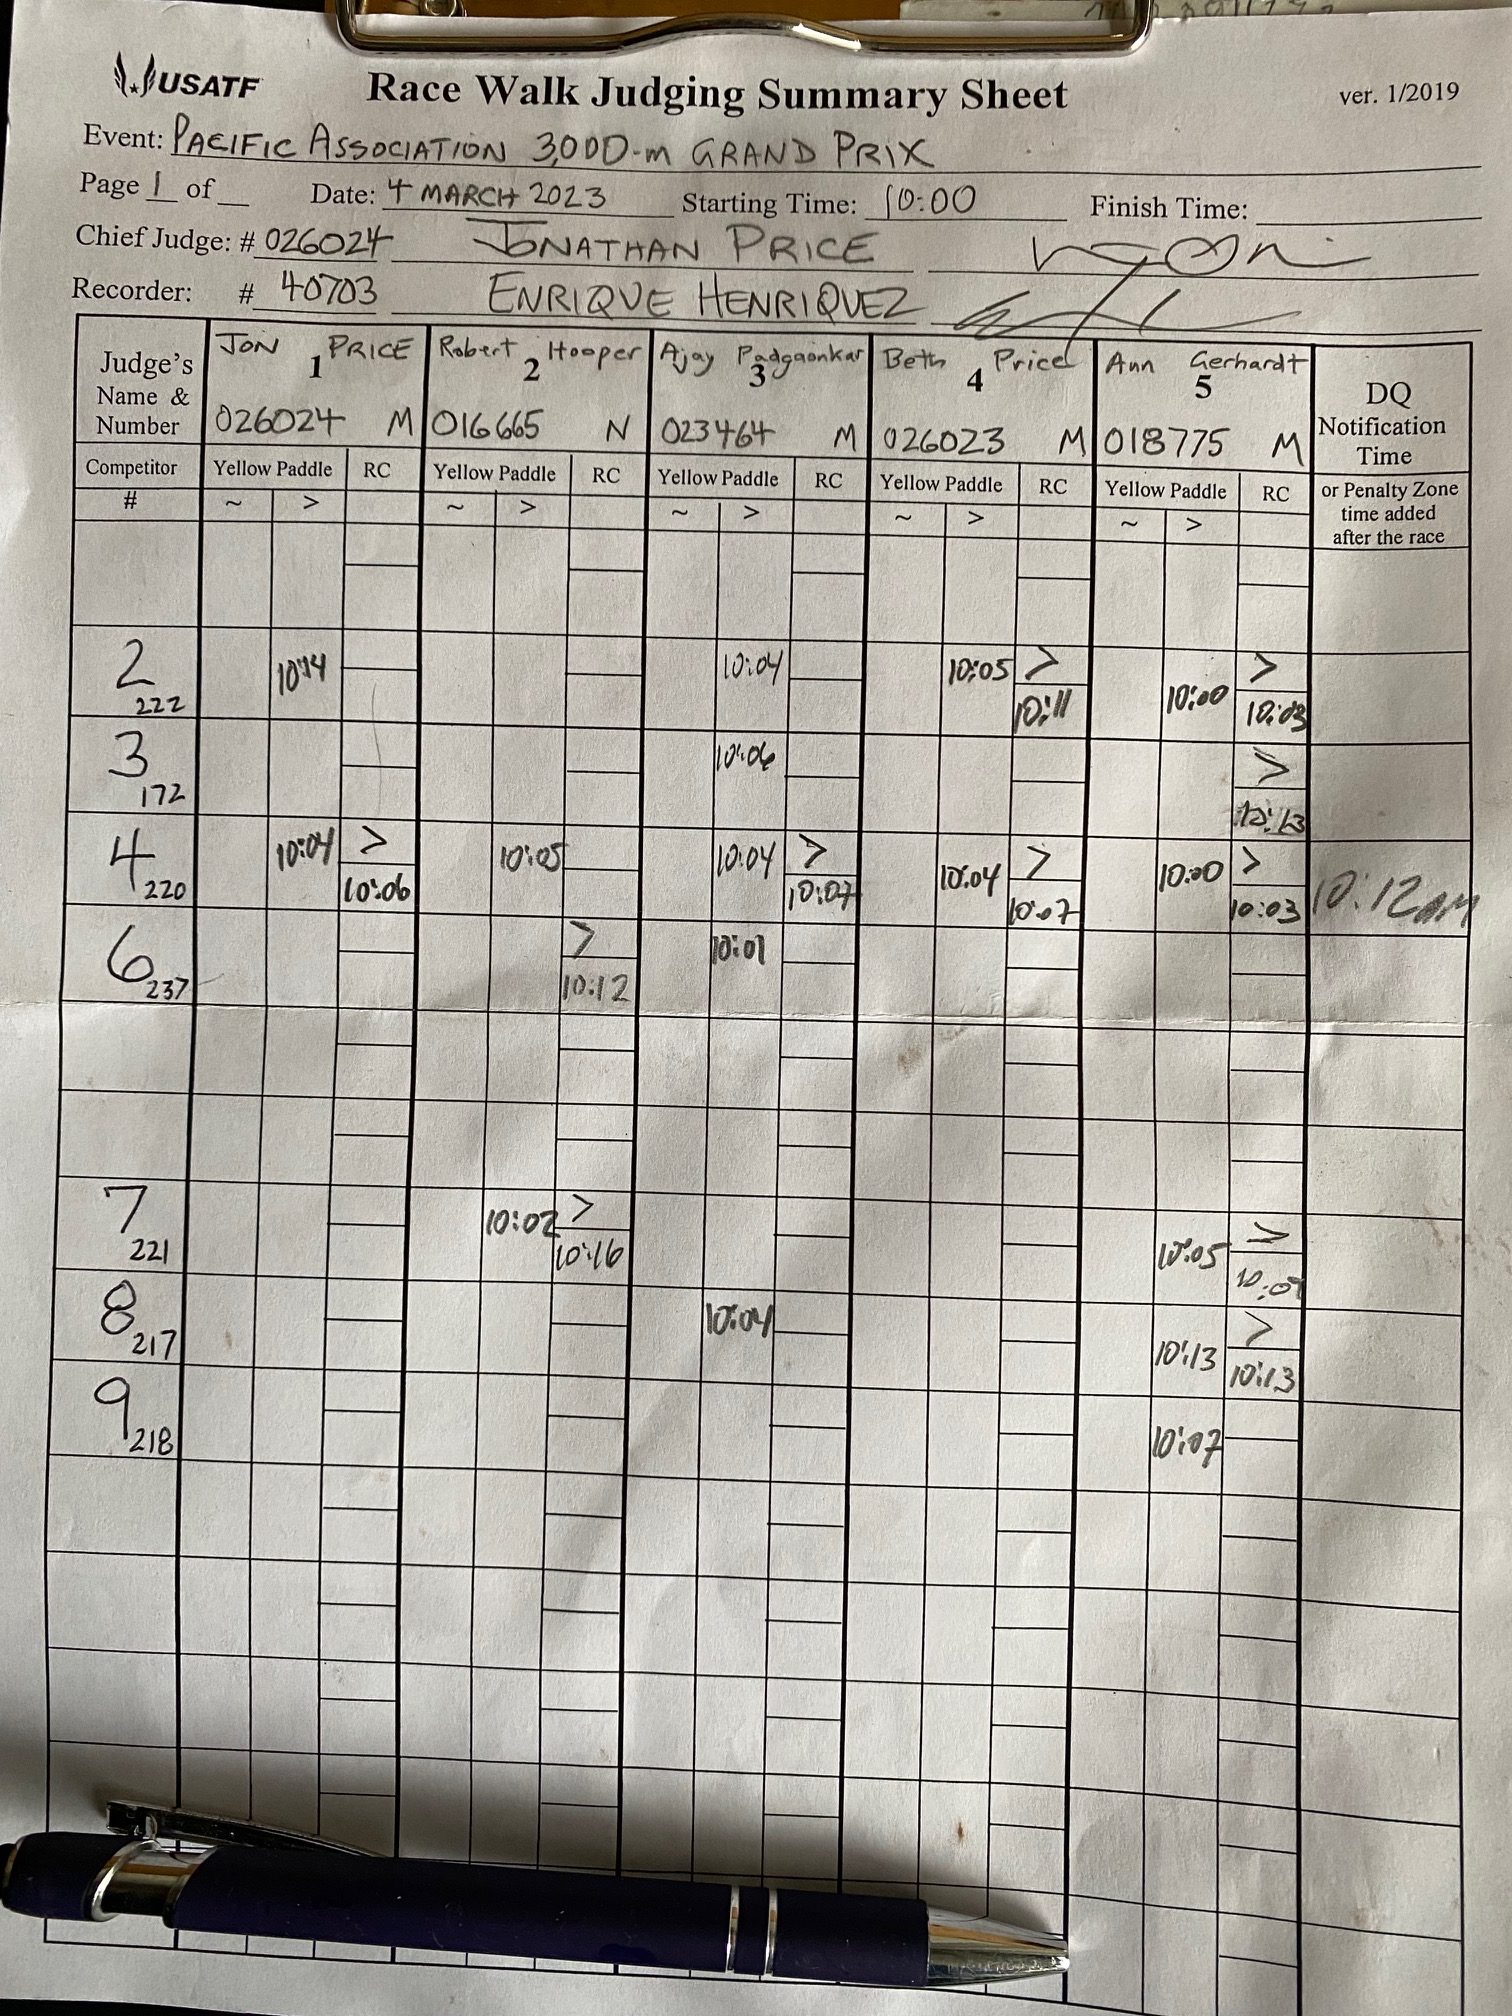 USATF Race Walk Judging Summary Sheet ver. 1/2019
Event: PACIFIC ASSOCIATION 3,000-m GRAND PRIX
Page 1 of __ Date: 4 MARCH 2023 Starting Time: 10:00 Finish Time:
Chief Judge: # 026024 JONATHAN PRICE
Recorder: # 40703 ENRIQUE HENRIQUEZ
Judge's Name & Number JON PRICE 1 026024 M Robert Hooper 2 016665 N Ajay Padgaonkar 3 023464 M Beth Price 4 026023 M Ann Gerhardt 5 018775 M DQ Notification Time
Competitor Yellow Paddle RC Yellow Paddle RC Yellow Paddle RC Yellow Paddle RC Yellow Paddle RC or Penalty Zone time added after the race
# ~ > ~ > ~ > ~ > ~ >
2 222 10:14 10:04 10:05 > 10:11 10:00 > 10:03
3 172 10:06 > 10:13
4 220 10:04 > 10:06 10:05 10:04 > 10:07 10:04 > 10:07 10:00 > 10:03 10:12 AM
6 237 > 10:12 10:01
7 221 10:02 > 10:16 10:05 >
8 217 10:04 10:13 > 10:13
9 218 10:07